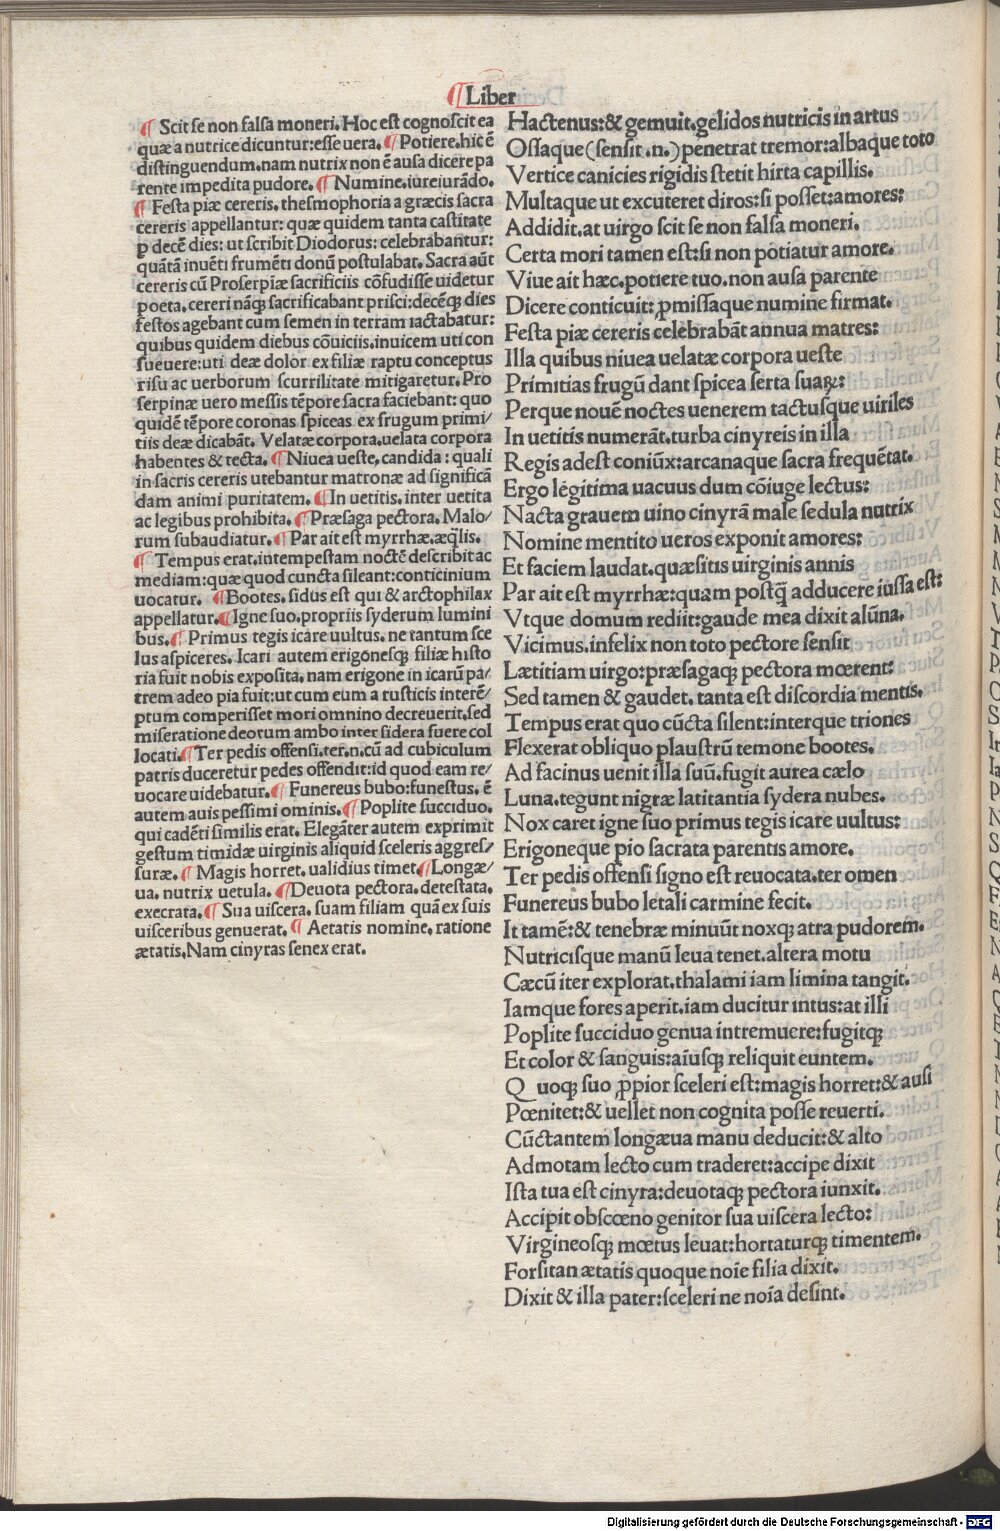 ¶ Liber
¶ Scit se non falsa moneri. Hoc est cognoscit ea
quæ a nutrice dicuntur: esse uera. ¶ Potiere. hic ē
distinguendum. nam nutrix non ē ausa dicere pa
rente impedita pudore. ¶ Numine. iureiurādo.
¶ Festa piæ cereris. thesmophoria a græcis sacra
cereris appellantur: quæ quidem tanta castitate
ꝑ decē dies: ut scribit Diodorus: celebrabantur:
quātā inuēti frumēti donū postulabat. Sacra aūt
cereris cū Proserpiæ sacrificiis cōfudisse uidetur
poeta. cereri nāqꝫ sacrificabant prisci: decēqꝫ dies
festos agebant cum semen in terram iactabatur:
quibus quidem diebus cōuiciis. inuicem uti con
sueuere: uti deæ dolor ex filiæ raptu conceptus
risu ac uerborum scurrilitate mitigaretur. Pro
serpinæ uero messis tēpore sacra faciebant: quo
quidē tēpore coronas spiceas ex frugum primi/
tiis deæ dicabāt. Velatæ corpora. uelata corpora
habentes & tecta. ¶ Niuea ueste, candida: quali
in sacris cereris utebantur matronæ ad significā
dam animi puritatem. ¶ In uetitis. inter uetita
ac legibus prohibita. ¶ Præsaga pectora. Malo/
rum subaudiatur. ¶ Par ait est myrrhæ. æq̄lis.
¶ Tempus erat. intempestam noctē describit ac
mediam: quæ quod cuncta sileant: conticinium
uocatur. ¶ Bootes. sidus est qui & arctophilax
appellatur. ¶ Igne suo. propriis syderum lumini
bus. ¶ Primus tegis icare uultus. ne tantum sce
lus aspiceres. Icari autem erigonesqꝫ filiæ histo
ria fuit nobis exposita. nam erigone in icarū pa/
trem adeo pia fuit: ut cum eum a rusticis interē/
ptum comperisset mori omnino decreuerit. sed
miseratione deorum ambo inter sidera fuere col
locati. ¶ Ter pedis offensi. ter. n. cū ad cubiculum
patris duceretur pedes offendit: id quod eam re/
uocare uidebatur. ¶ Funereus bubo: funestus. ē
autem auis pessimi ominis. ¶ Poplite succiduo.
qui cadēti similis erat. Elegāter autem exprimit
gestum timidæ uirginis aliquid sceleris aggres/
suræ. ¶ Magis horret. ualidius timet. ¶ Longæ/
ua. nutrix uetula. ¶ Deuota pectora. detestata.
execrata. ¶ Sua uiscera. suam filiam quā ex suis
uisceribus genuerat. ¶ Aetatis nomine. ratione
ætatis. Nam cinyras senex erat.
Hactenus: & gemuit. gelidos nutricis in artus
Ossaque (sensit .n.) penetrat tremor: albaque toto
Vertice canicies rigidis stetit hirta capillis.
Multaque ut excuteret diros: si posset: amores:
Addidit. at uirgo scit se non falsa moneri.
Certa mori tamen est: si non potiatur amore.
Viue ait hæc. potiere tuo. non ausa parente
Dicere conticuit: ꝓmissaque numine firmat.
Festa piæ cereris celebrabāt annua matres:
Illa quibus niuea uelatæ corpora ueste
Primitias frugū dant spicea serta suaꝝ:
Perque nouē noctes uenerem tactusque uiriles
In uetitis numerāt. turba cinyreis in illa
Regis adest coniūx: arcanaque sacra frequētat.
Ergo legitima uacuus dum cōiuge lectus:
Nacta grauem uino cinyrā male sedula nutrix
Nomine mentito ueros exponit amores:
Et faciem laudat. quæsitis uirginis annis
Par ait est myrrhæ: quam postq̄ adducere iussa est:
Vtque domum rediit: gaude mea dixit alūna.
Vicimus. infelix non toto pectore sensit
Lætitiam uirgo: præsagaqꝫ pectora mœrent:
Sed tamen & gaudet. tanta est discordia mentis.
Tempus erat quo cūcta silent: interque triones
Flexerat obliquo plaustrū temone bootes.
Ad facinus uenit illa suū. fugit aurea cælo
Luna. tegunt nigræ latitantia sydera nubes.
Nox caret igne suo primus tegis icare uultus:
Erigoneque pio sacrata parentis amore.
Ter pedis offensi signo est reuocata. ter omen
Funereus bubo letali carmine fecit.
It tamē: & tenebræ minuūt noxqꝫ atra pudorem.
Nutricisque manū leua tenet. altera motu
Cæcū iter explorat. thalami iam limina tangit.
Iamque fores aperit. iam ducitur intus: at illi
Poplite succiduo genua intremuere: fugitqꝫ
Et color & sanguis: aīusqꝫ reliquit euntem.
Quoqꝫ suo ꝓpior sceleri est: magis horret: & ausi
Pœnitet: & uellet non cognita posse reuerti.
Cūctantem longæua manu deducit: & alto
Admotam lecto cum traderet: accipe dixit
Ista tua est cinyra: deuotaqꝫ pectora iunxit.
Accipit obscœno genitor sua uiscera lecto:
Virgineosqꝫ mœtus leuat: hortaturqꝫ timentem.
Forsitan ætatis quoque noīe filia dixit.
Dixit & illa pater: sceleri ne noīa desint.
Digitalisierung gefördert durch die Deutsche Forschungsgemeinschaft - DFG